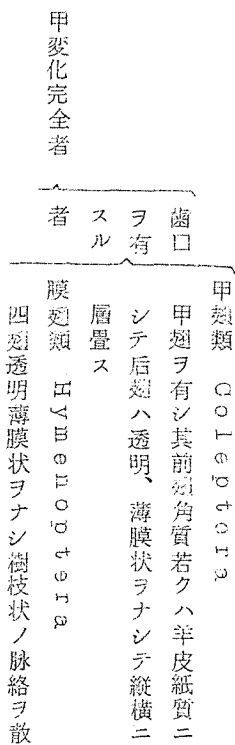 甲翅類 Coleptora
甲翅ヲ有シ其前翅角質若クハ羊皮紙質ニ
シテ后翅ハ透明、薄膜状ヲナシテ縦横ニ
層畳ス
膜翅類 Hymenoptera
四翅透明薄膜状ヲナシ樹枝状ノ脉絡ヲ散
歯口
ヲ有
スル
者
甲変化完全者